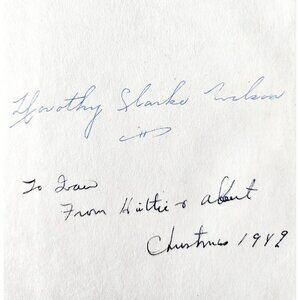 Dorothy Clarke Wilson
To
From Hattie & Albert
Christmas 1989